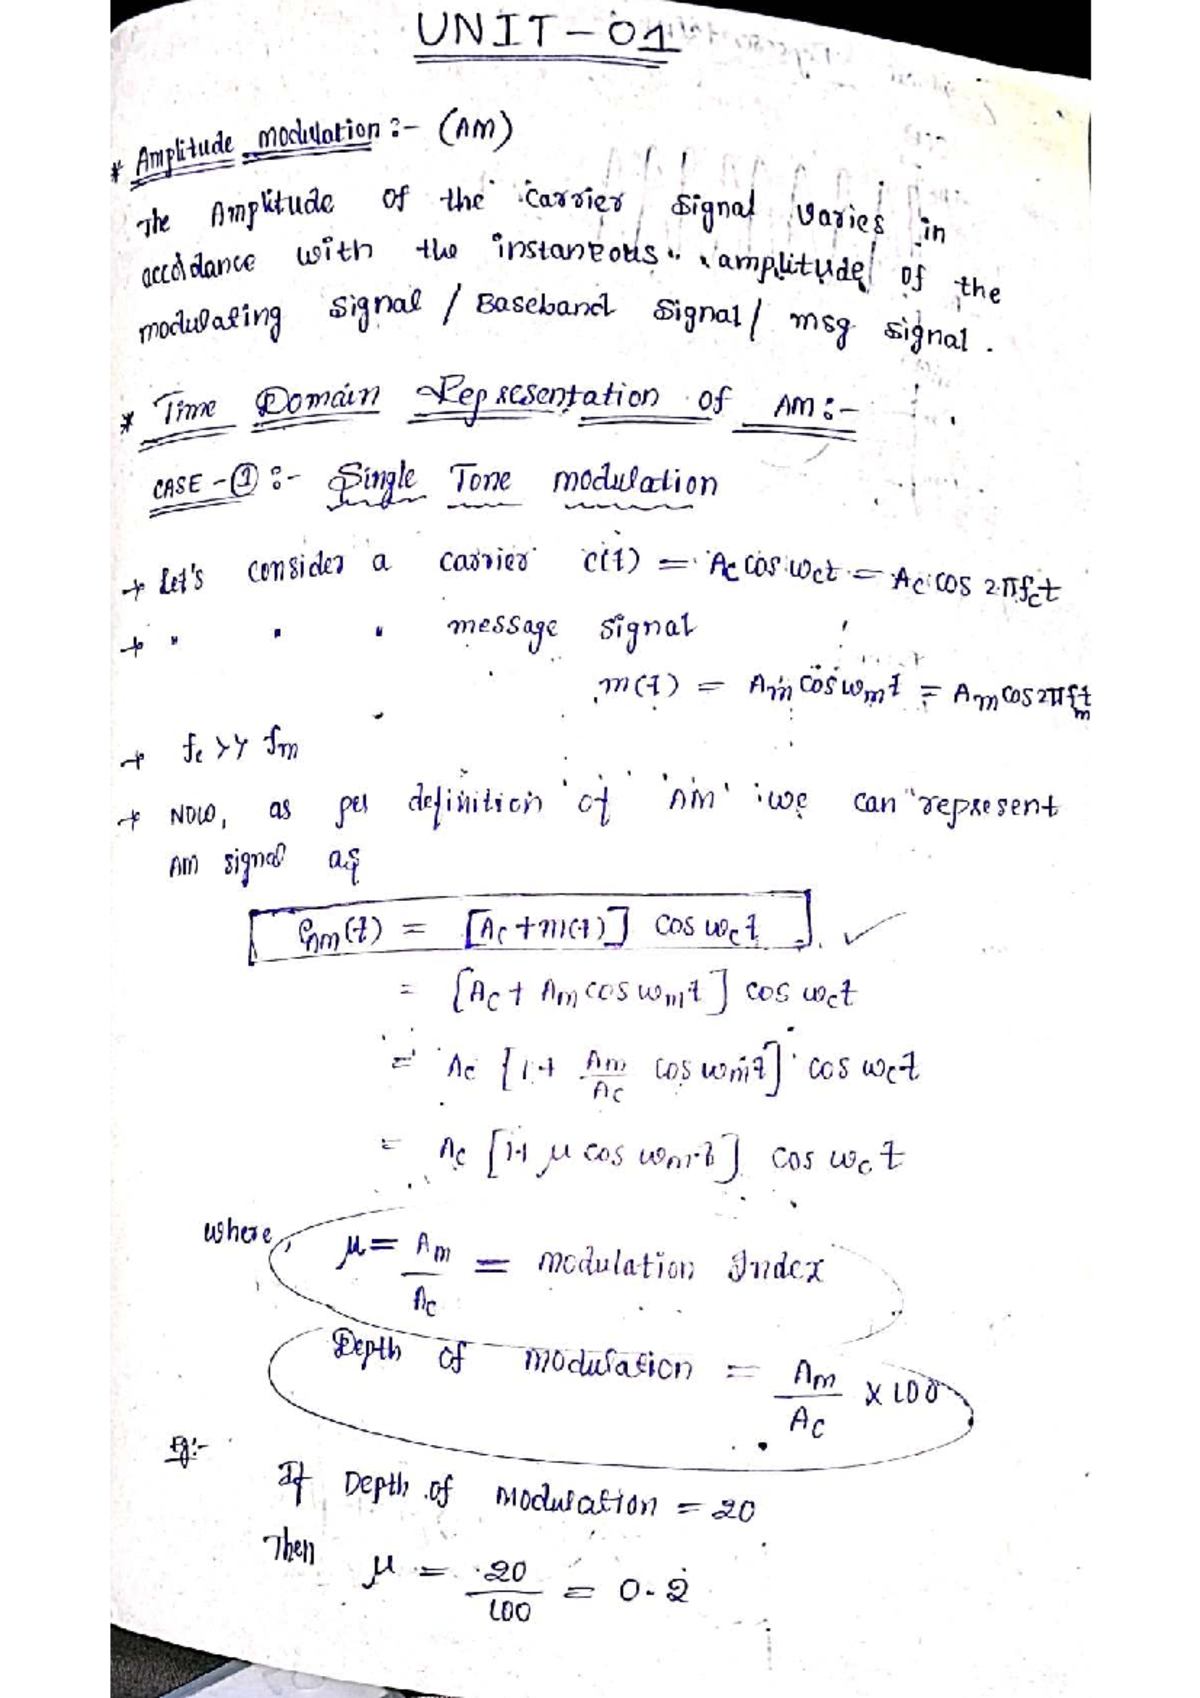 UNIT - 01
* Amplitude modulation :- (AM)
The Amplitude of the carrier signal varies in
accordance with the instaneous amplitude of the
modulating signal / Baseband signal / msg signal.
* Time Domain Representation of AM :-
CASE - ① :- Single Tone modulation
→ Let's consider a carrier c(t) = Ac cos ωct = Ac cos 2πfct
→ " " " message signal
m(t) = Am cos ωmt = Am cos 2πfmt
→ fc >> fm
→ Now, as per definition of 'AM' we can represent
AM signal as
eAM(t) = [Ac + m(t)] cos ωct
= [Ac + Am cos ωmt] cos ωct
= Ac [1 + Am/Ac cos ωmt] cos ωct
= Ac [1 + μ cos ωmt] cos ωct
where, μ = Am/Ac = modulation Index
Depth of modulation = Am/Ac × 100
Eg:-
If Depth of modulation = 20
Then μ = 20/100 = 0.2